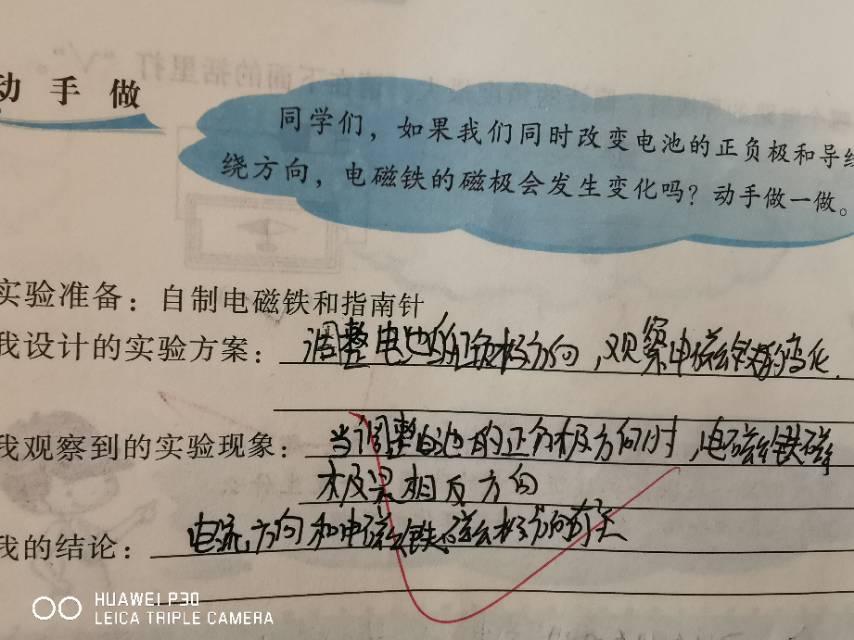 动手做
同学们，如果我们同时改变电池的正负极和导线
绕方向，电磁铁的磁极会发生变化吗？动手做一做。
实验准备：自制电磁铁和指南针
我设计的实验方案：调整电池的正负极方向，观察电磁铁的变化.
我观察到的实验现象：当调整电池的正负极方向时，电磁铁磁
极呈相反方向
我的结论：电流方向和电磁铁磁极方向有关
HUAWEI P30
LEICA TRIPLE CAMERA